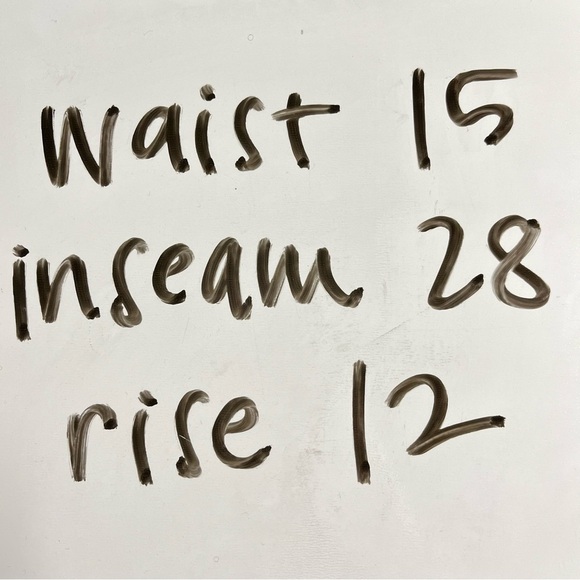 waist 15
inseam 28
rise 12